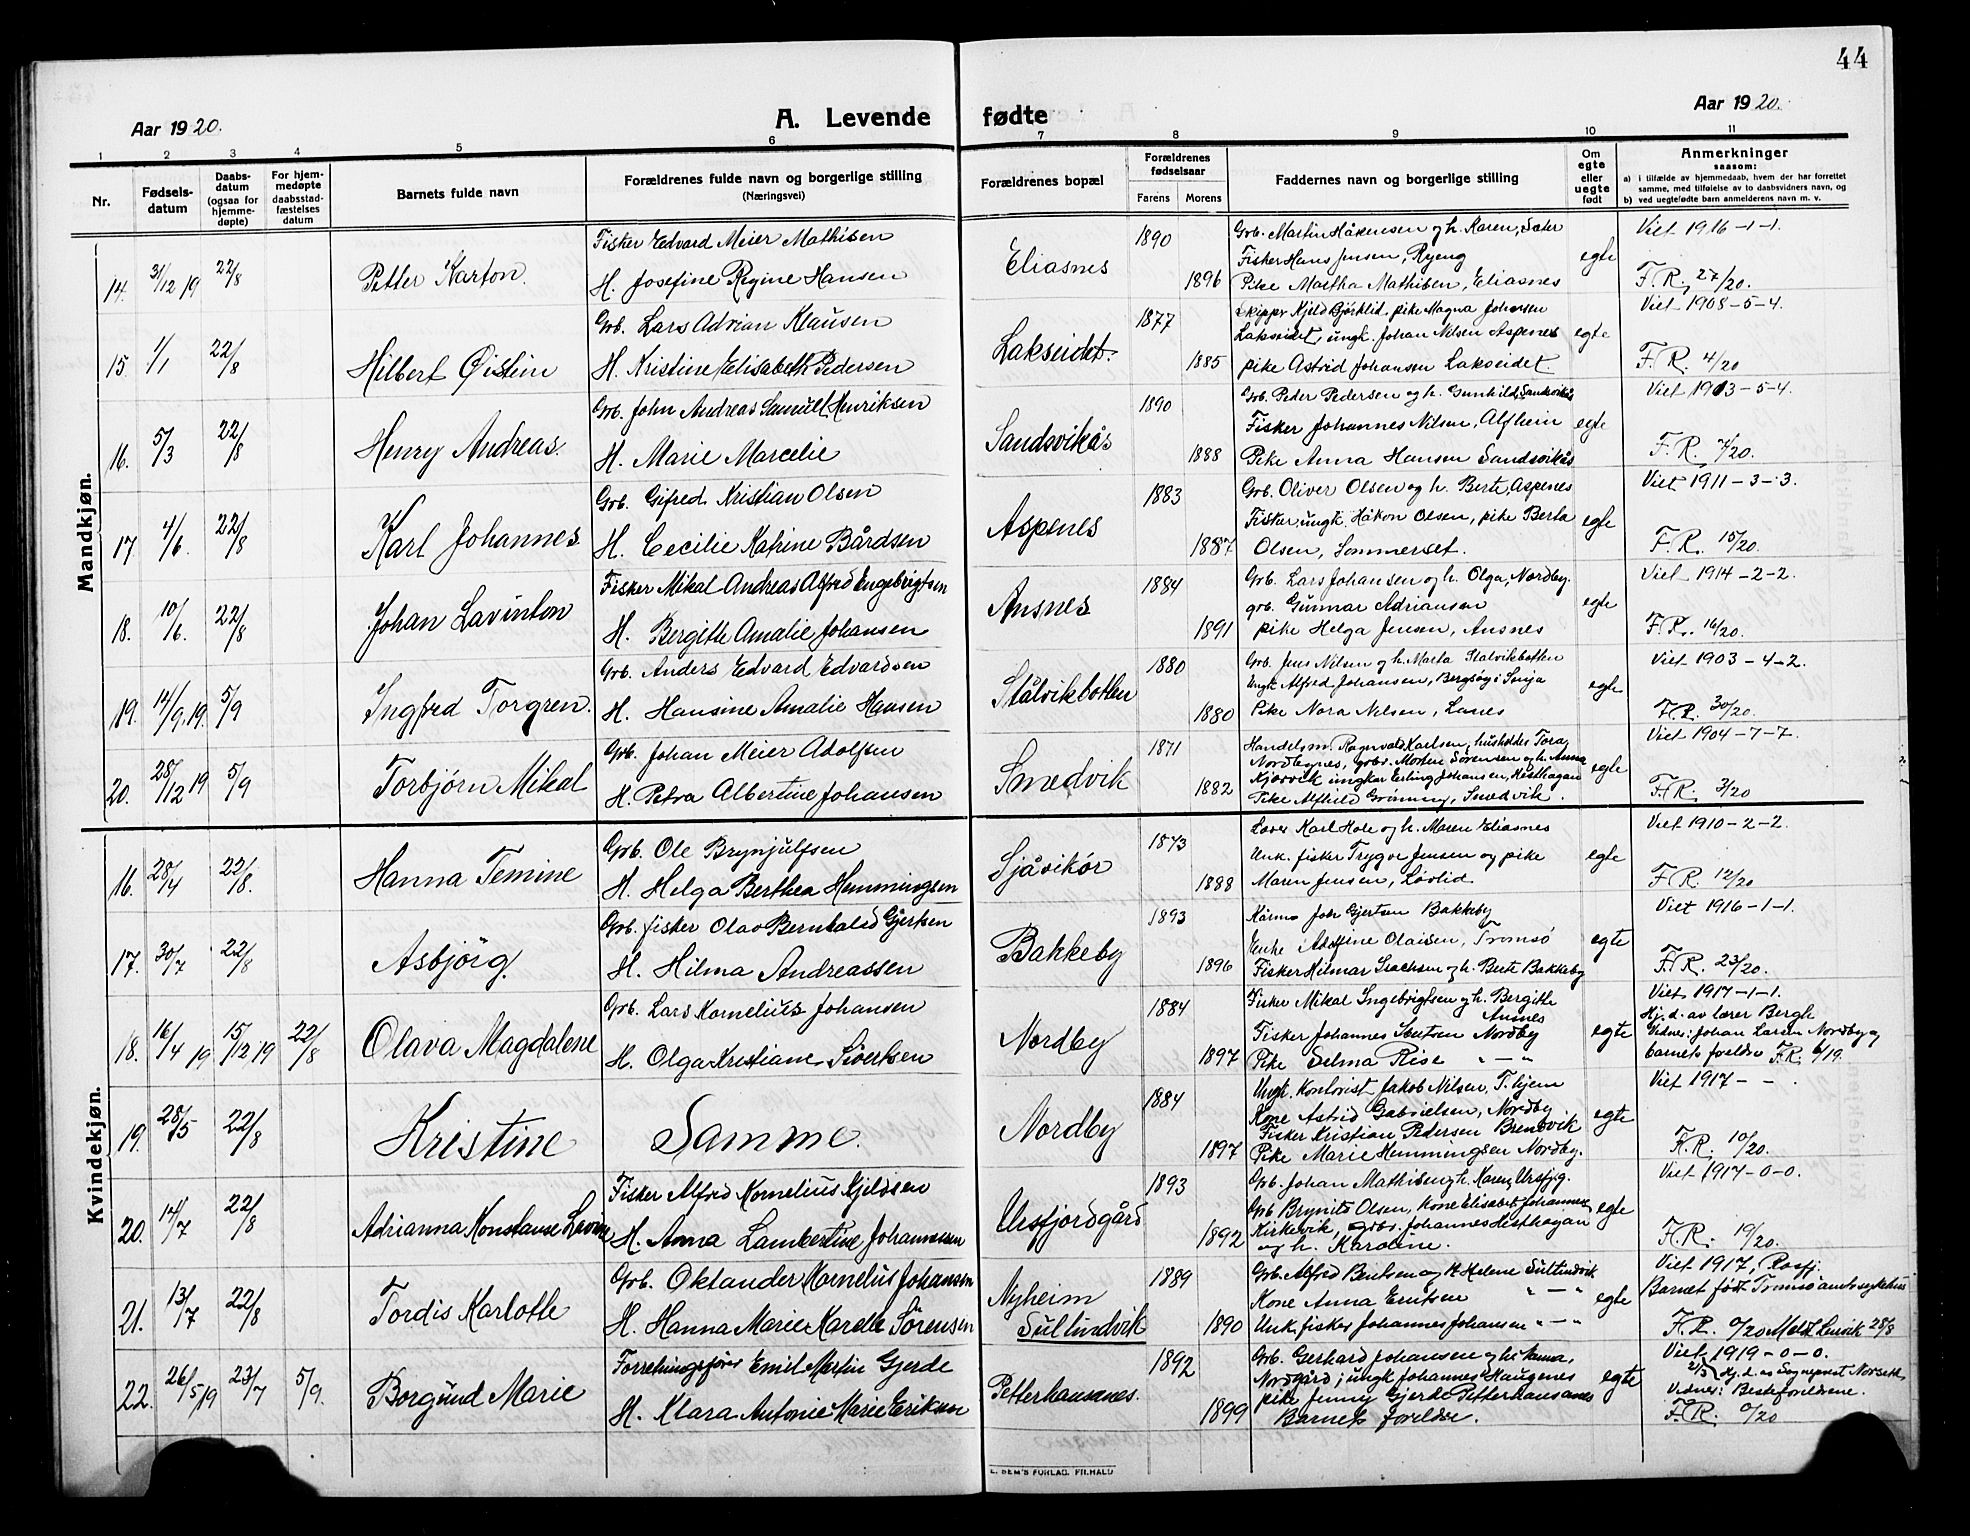 44
Aar 1920.
A. Levende fødte
Aar 1920.
1 2 3 4 5 6 7 8 9 10 11
Nr.
Fødsels-
datum
Daabs-
datum
(ogsaa for
hjemme-
døpte)
For hjem-
medøpte
daabsstad-
fæstelses
datum
Barnets fulde navn
Forældrenes fulde navn og borgerlige stilling
(Næringsvei)
Forældrenes bopæl
Forældrenes
fødselsaar
Farens Morens
Faddernes navn og borgerlige stilling
Om
egte
eller
uegte
født
Anmerkninger
saasom:
a) i tilfælde av hjemmedaab, hvem der har forrettet
samme, med tilføielse av to daabsvidners navn, og
b) ved uegtefødte barn anmelderens navn m. v.
Mandkjøn.
14. 31/12 19 22/8 Petter Karton.
Fisker Edvard Meier Mathisen
H. Josefine Regine Hansen
Eliasnes 1890 1896
Grb. Martin Håkensen og h. Karen, Sæter
Fisker Hans Jensen, Ryeng
Pike Martha Mathisen, Eliasnes
egte
Viet 1916-1-1.
F.R. 27/20.
15. 1/1 22/8 Hilbert Øistein
Grb. Lars Adrian Klausen
H. Kristine Elisabeth Pedersen
Lakseidet. 1877 1885
Skipper Kjeld Bjørklid, pike Magna Johansen
Lakseidet, ungk. Johan Nilsen Aspenes
pike Astrid Johansen Lakseidet.
egte
Viet 1908-5-4.
F.R. 4/20
16. 5/3 22/8 Henry Andreas.
Grb. John Andreas Samuel Henriksen
H. Marie Marcelie
Sandsvikås 1890 1888
Grb. Peder Pedersen og h. Gunhild, Sandsvikås
Fisker Johannes Nilsen, Alfheim
Pike Anna Hansen Sandsvikås
egte
Viet 1913-5-4.
F.R. 7/20.
17 4/6. 22/8 Karl Johannes
Grb. Gifred Kristian Olsen
H. Cecilie Katrine Bårdsen
Aspenes 1883 1887
Grb. Oliver Olsen og h. Berte, Aspenes
Fisker, ungk. Håkon Olsen, pike Berta
Olsen, Sommerset.
egte
Viet 1911-3-3.
F.R. 15/20.
18. 10/6. 22/8 Johan Lavinton
Fisker Mikal Andreas Alfred Engebrigtsen
H. Bergithe Amalie Johansen
Ansnes 1884 1891
Grb. Lars Johansen og h. Olga, Nordby.
grb. Gunnar Adriansen
pike Helga Jensen, Ansnes
egte
Viet 1914-2-2.
F.R. 16/20.
19. 14/9.19. 5/9 Ingfred Torgren.
Grb. Anders Edvard Edvardsen
H. Hansine Amalie Hansen
Stålvikbotten 1880 1880
Grb. Jens Nilsen og h. Marta Stålvikbotten
Ungk. Alfred Johansen, Bergsøy i Senja
Pike Nora Nilsen, Lanes
egte
Viet 1903-4-2.
F.R. 30/20.
20. 28/12 19 5/9 Torbjørn Mikal
Grb. Johan Meier Adolfsen
H. Petra Albertine Johansen
Smedvik 1871 1882
Handelsm. Ragnvald Karlsen, husholder Tora
Nordbynes, grbr. Morten Sørensen og h. Anna
Kjosvik ungkar Erling Johansen, Hesthagan
Pike Alfhild Grønning, Smedvik.
egte
Viet 1904-7-7.
F.R. 3/20
Kvindekjøn.
16. 28/4 22/8. Hanna Temine
Grb. Ole Brynjulfsen
H. Helga Berthea Hemmingsen
Sjåvikør 1873 1888
Lærer Karl Hole og h. Maren Eliasnes
Unk. fisker Trygve Jensen og pike
Maren Jensen, Løvlid
egte
Viet 1910-2-2.
F.R. 12/20
17. 30/7 22/8 Asbjørg.
Grb. fisker Olav Bernhard Gjertsen
H. Hilma Andreassen
Bakkeby 1893 1896
Joh Gjertsen Bakkeby
Enke Adolfine Olaisen, Tromsø
Fisker Hilmar Isachsen og h. Berte Bakkeby
egte
Viet 1916-1-1.
F.R. 23/20.
18. 16/4 19 15/12,19 22/8 Olava Magdalene
Grb. Lars Kornelius Johansen
H. Olga Kristiane Sivertsen
Nordby 1884 1897
Fisker Mikal Ingebrigtsen og h. Bergitte
Ansnes
Fisker Johannes Sivertsen Nordby
Pike Selma Rise " — "
egte
Viet 1917-1-1.
Hj.d. av lærer Bergh
Vidner: Johan Larsen Nordby og
barnets foreldre F.R. 6/19.
19. 28/5 22/8 Kristine
Samme.
Nordby 1884 1897
Ungk. Kontorist Jakob Nilsen, T.hjem
Kone Astrid Gabrielsen, Nordby
Fisker Kristian Pedersen Brendvik
Pike Marie Hemmingsen Nordby.
egte
Viet 1917- - .
F.R. 10/20.
20. 14/7 22/8 Adrianna Konstanse Lovise
Fisker Alfred Kornelius Kjeldsen
H. Anna Lambertine Johannesen
Ursfjordgård 1893 1892
Grb. Johan Mathisen og h. Karen, Ursfjg.
Grb Brynits Olsen, Kone Elisabet Johannesen
Kirkevik, grbr. Johannes Hesthagan
og h. Karoline.
egte
Viet 1917-0-0.
F.R. 19/20.
21. 13/7 22/8 Tordis Karlotte
Grb. Oktander Kornelius Johansen
H. Hanna Marie Karelle Sørensen
Nyheim
Sultindvik 1889 1890
Grb. Alfred Bentsen og h. Helene Sultindvik
Kone Anna Eriksen " — "
Unk. fisker Johannes Johansen " — "
egte
Viet 1917, Rossfj.
Barnet født Tromsø amtssykehus
F.R. 0/20 Meldt Lenvik 28/8
22. 26/5 19 23/7 5/9. Borgund Marie
Forretningsfører Emil Martin Gjerde
H. Klara Antonie Marie Eriksen
Petterhansenes. 1892 1899
Grb. Gerhard Johansen og h. Anna,
Nordgård; ungk Johannes Haugenes
pike Jenny Gjerde Petterhansenes
Barnets foreldre.
egte
Viet 1919-0-0.
Hj. d. av Sogneprest Norseth
Vidner: Besteforeldrene.
F.R. 0/20
E. SEM'S FORLAG, FR.HALD